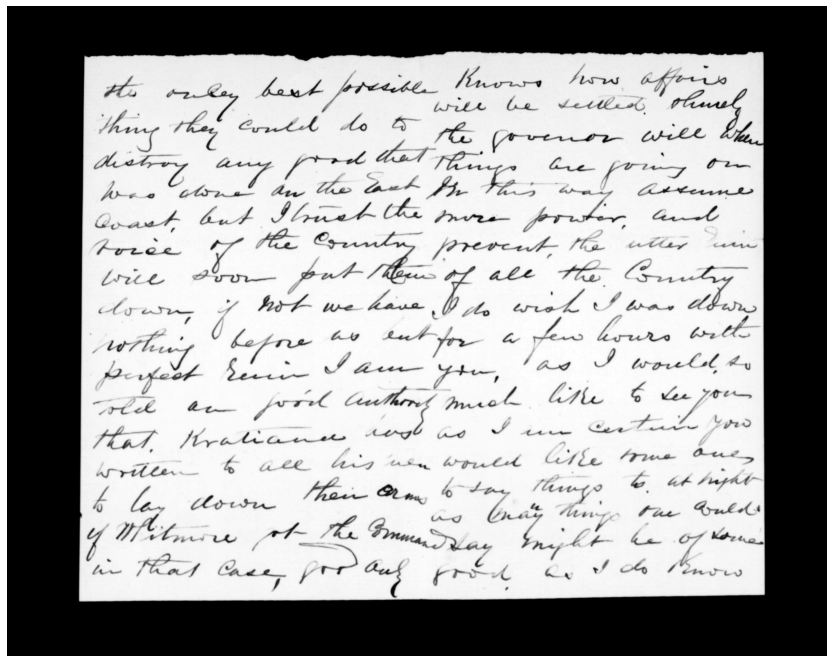 the onley best possible
thing they could do to
distroy any good that
was done on the East
Coast, but I trust the
voice of the Country
will soon put them
down, if not we have
nothing before us but
perfect Ruin I am
told on good Authority
that, has
written to all his men
to lay down their arms
if Whitmore got the Command
in that case, god only
Knows how affairs
will be settled.
the govenor will when
things are going on
in this way assume
more power, and
prevent, the utter Ruin
of all the Country
I do wish I was down
for a few hours with
you, as I would, so
much like to see you
as I am certain you
would like some one
to say things to. at night
as many things one could
say might be of some
good. as I do Know